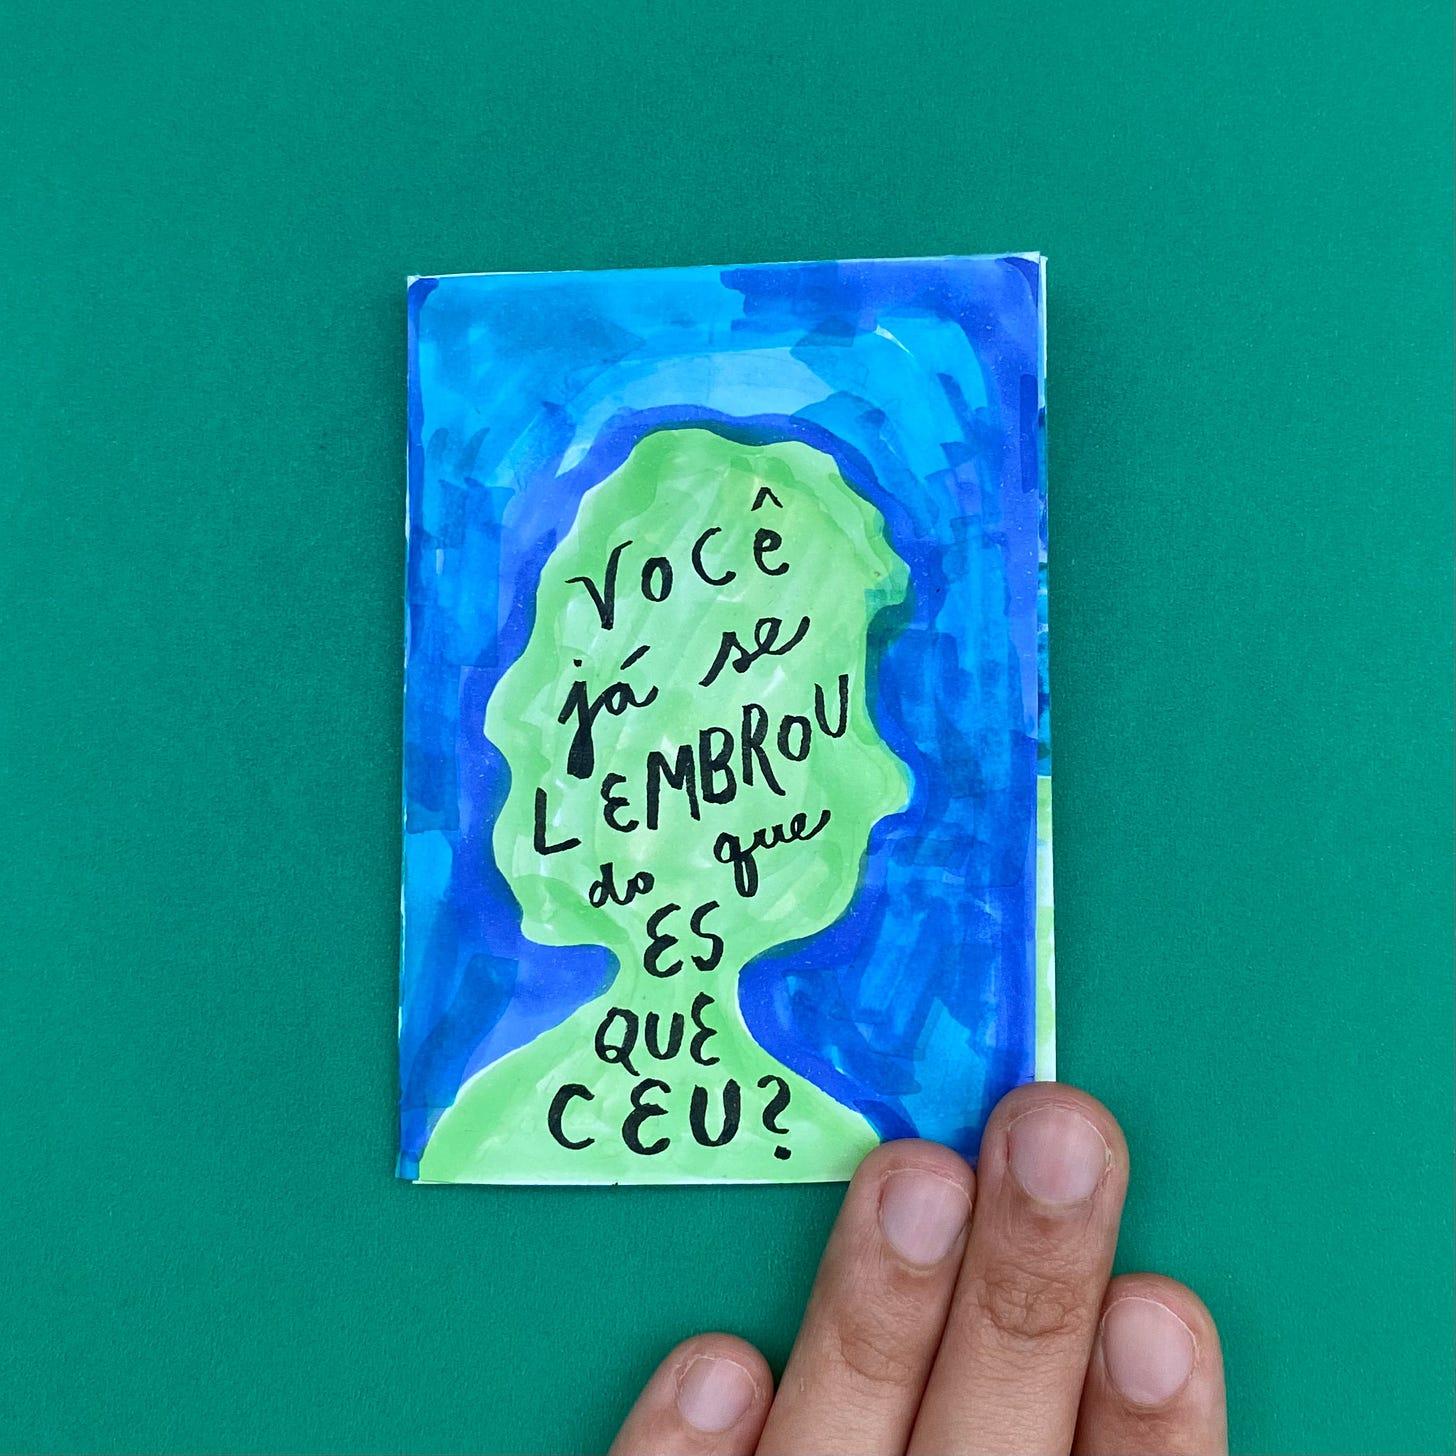 VOCê
já se
LEMBROU
do que
ES
QUE
CEU?